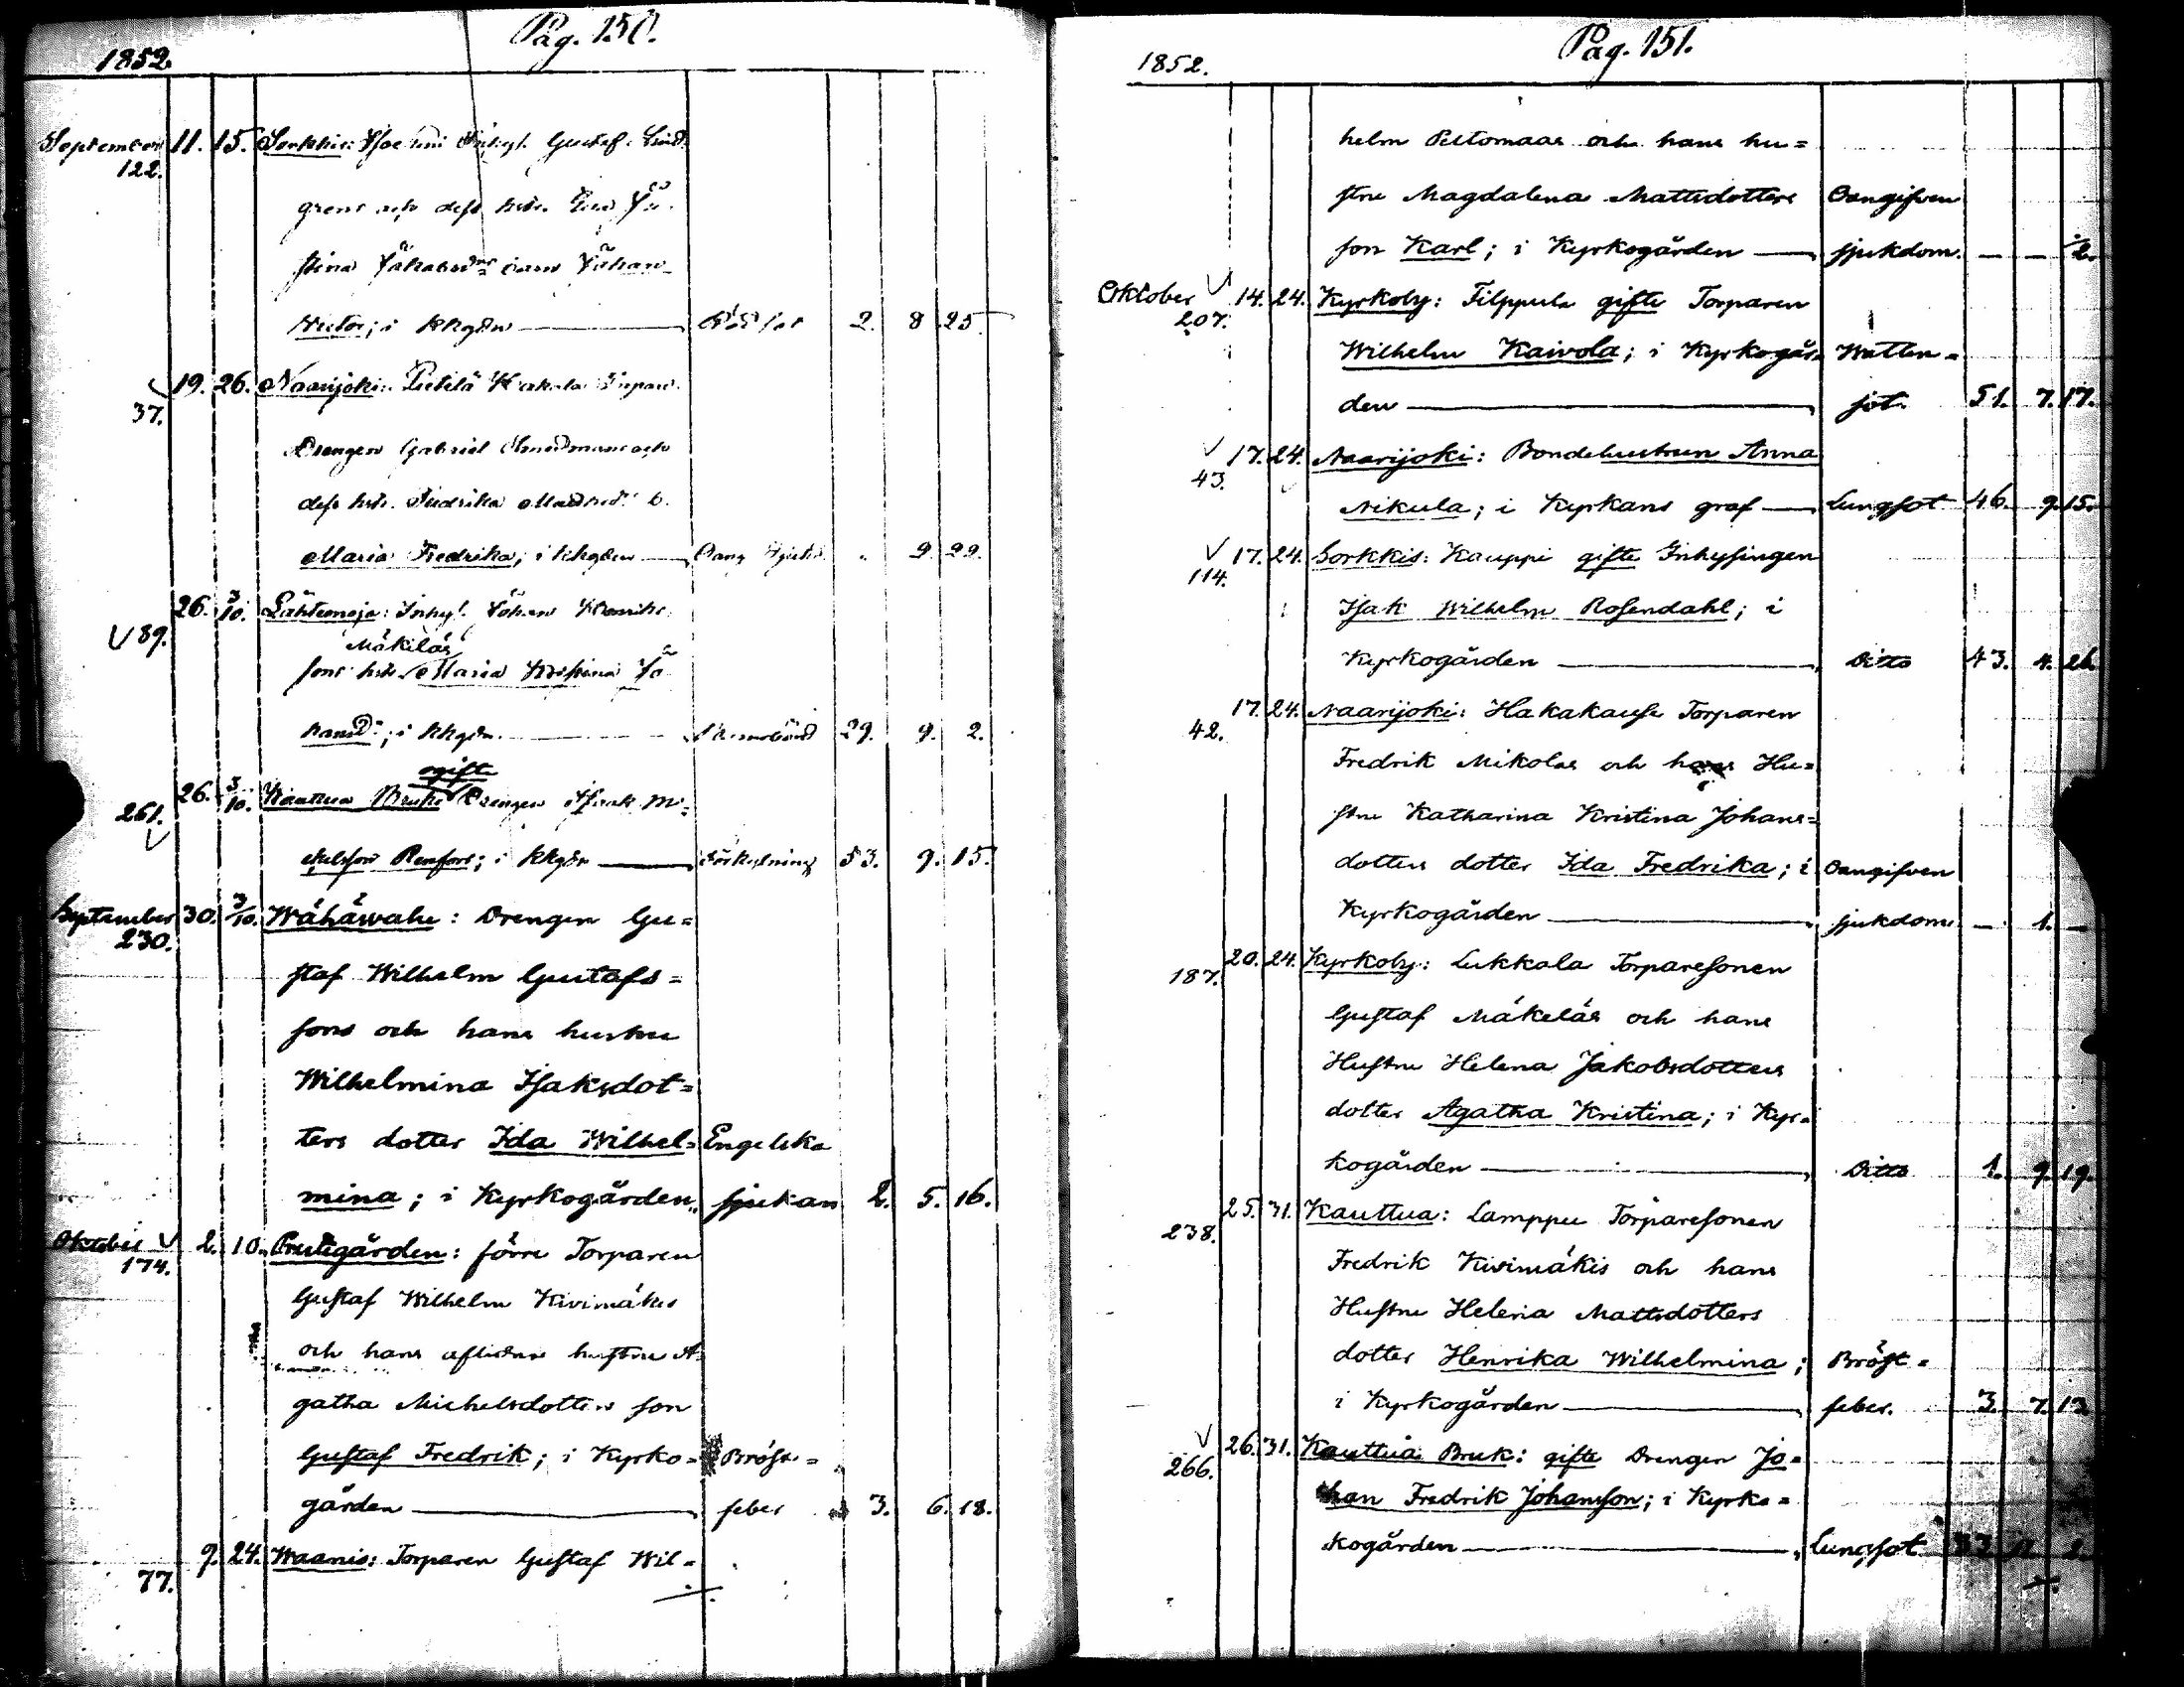 Pag. 150.
1852.
September 11. 15. Sorkkis: Gustaf Lind=
122.
grens och dess hstr.
stina barn Johan
Victor; i kkgdn — Rödsot 2. 8 25.
19. 26. Naarijoki:
37.
Drengen Gabriel och
dess hstr. Fredrika b.
Maria Fredrika; i kkgden — Oang. 9. 29.
26. 3/10. Lähteenoja: Inhys. Johan Henriks
89.
Mäkiläs
sons hstr. Maria Kristina Jo
hansdr; i kkgdn. — 29. 9. 2.
ogifte
26. 3/10. Kauttua Bruk: Drengen Isaak Mi=
261.
ckelsson Renfors; i kkgdn — Förkylning 53. 9. 15.
September 30. 3/10. Wähäwahe: Drengen Gu=
230.
staf Wilhelm Gustafs=
sons och hans hustru
Wilhelmina Isaksdot=
ters dotter Ida Wilhel= Engelska
mina; i Kyrkogården, sjukan 2. 5. 16.
Oktober 2. 10. Prustgården: förre Torparen
174.
Gustaf Wilhelm Kivimäkis
och hans aflidna hustru A=
gatha Michelsdotters son
Gustaf Fredrik; i Kyrko= Bröst=
gården — feber 3. 6. 18.
9. 24. Waanis: Torparen Gustaf Wil=
77.
Pag. 151.
1852.
helm Peltomaas och hans hu=
stru Magdalena Mattsdotters Oangifven
son Karl; i Kyrkogården — sjukdom. — — 2.
Oktober 14. 24. Kyrkoby: Filppula gifte Torparen
207.
Wilhelm Kaivola; i Kyrkogår= Watten=
den — sot. 51. 7. 17.
17. 24. Naarijoki: Bondehustrun Anna
43.
Nikula; i Kyrkans graf — Lungsot 46. 9. 15.
17. 24. Sorkkis: Kauppi gifte Inhysingen
114.
Isak Wilhelm Rosendahl; i
Kyrkogården — Ditto 43. 4. 26.
17. 24. Naarijoki: Hakakause Torparen
42.
Fredrik Mikolas och hans Hu=
stru Katharina Kristina Johans=
dotters dotter Ida Fredrika; i Oangifven
Kyrkogården — sjukdom — 1. —
20. 24. Kyrkoby: Lukkala Torparesonen
187.
Gustaf Mäkeläs och hans
Hustru Helena Jakobsdotters
dotter Agatha Kristina; i Kyr=
kogården — Ditto 1. 9. 19.
25. 31. Kauttua: Lamppu Torparesonen
238.
Fredrik Kivimäkis och hans
Hustru Helena Mattsdotters
dotter Henrika Wilhelmina; Bröst=
i Kyrkogården — feber. 3. 7. 13
26. 31. Kauttua Bruk: gifte Drengen Jo=
266.
han Fredrik Johansson; i Kyrko=
kogården — Lungsot 2.